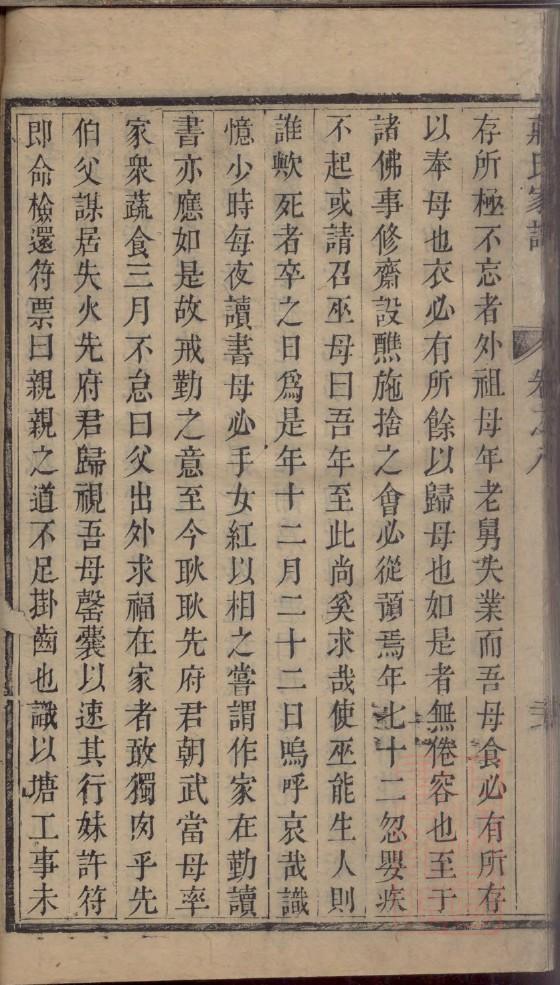 氏家譜
卷之八
存所極不忘者外祖母年老舅失業而吾母食必有所存
以奉母也衣必有所餘以歸母也如是者無倦容也至于
諸佛事修齋設醮施捨之會必從頭焉年七十二忽嬰疾
不起或請召巫母曰吾年至此尚奚求哉使巫能生人則
誰歟死者卒之日爲是年十二月二十二日嗚呼哀哉識
憶少時每夜讀書母必手女紅以相之嘗謂作家在勤讀
書亦應如是故戒勤之意至今耿耿先府君朝武當母率
家衆蔬食三月不怠曰父出外求福在家者敢獨肉乎先
伯父謀居失火先府君歸視吾母罄囊以速其行妹許符
即命檢還符票曰親親之道不足掛齒也識以塘工事未